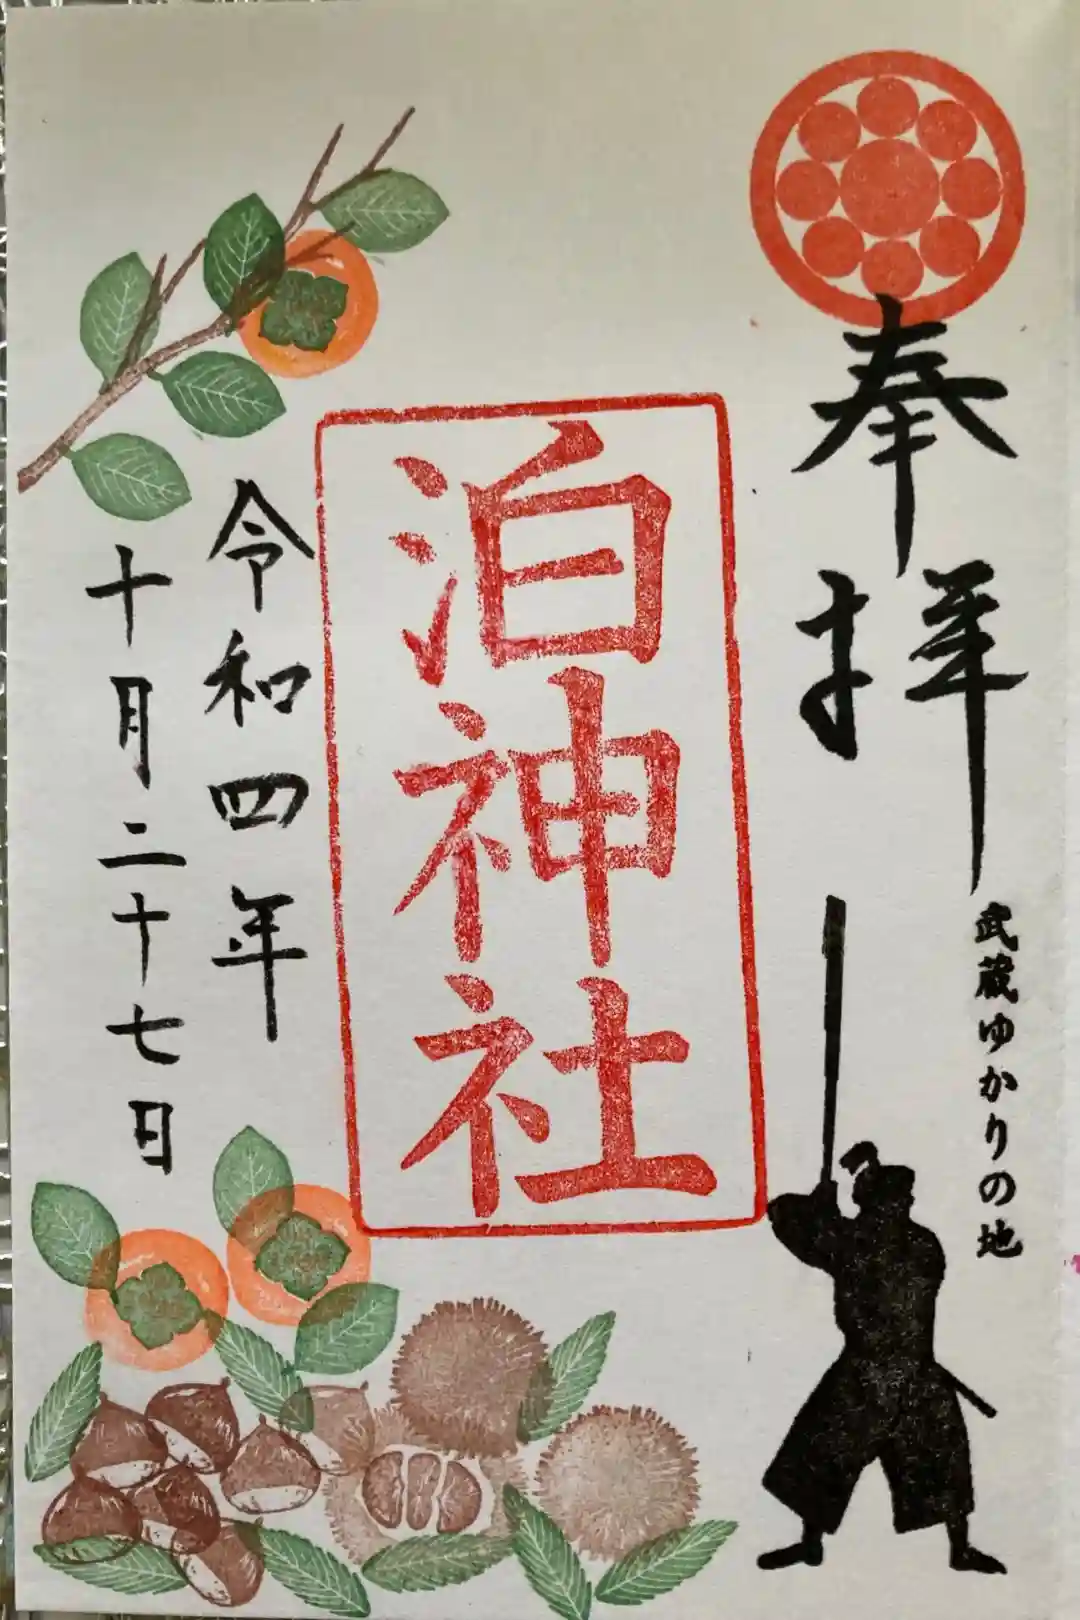 奉拝
武蔵ゆかりの地
泊神社
令和四年
十月二十七日